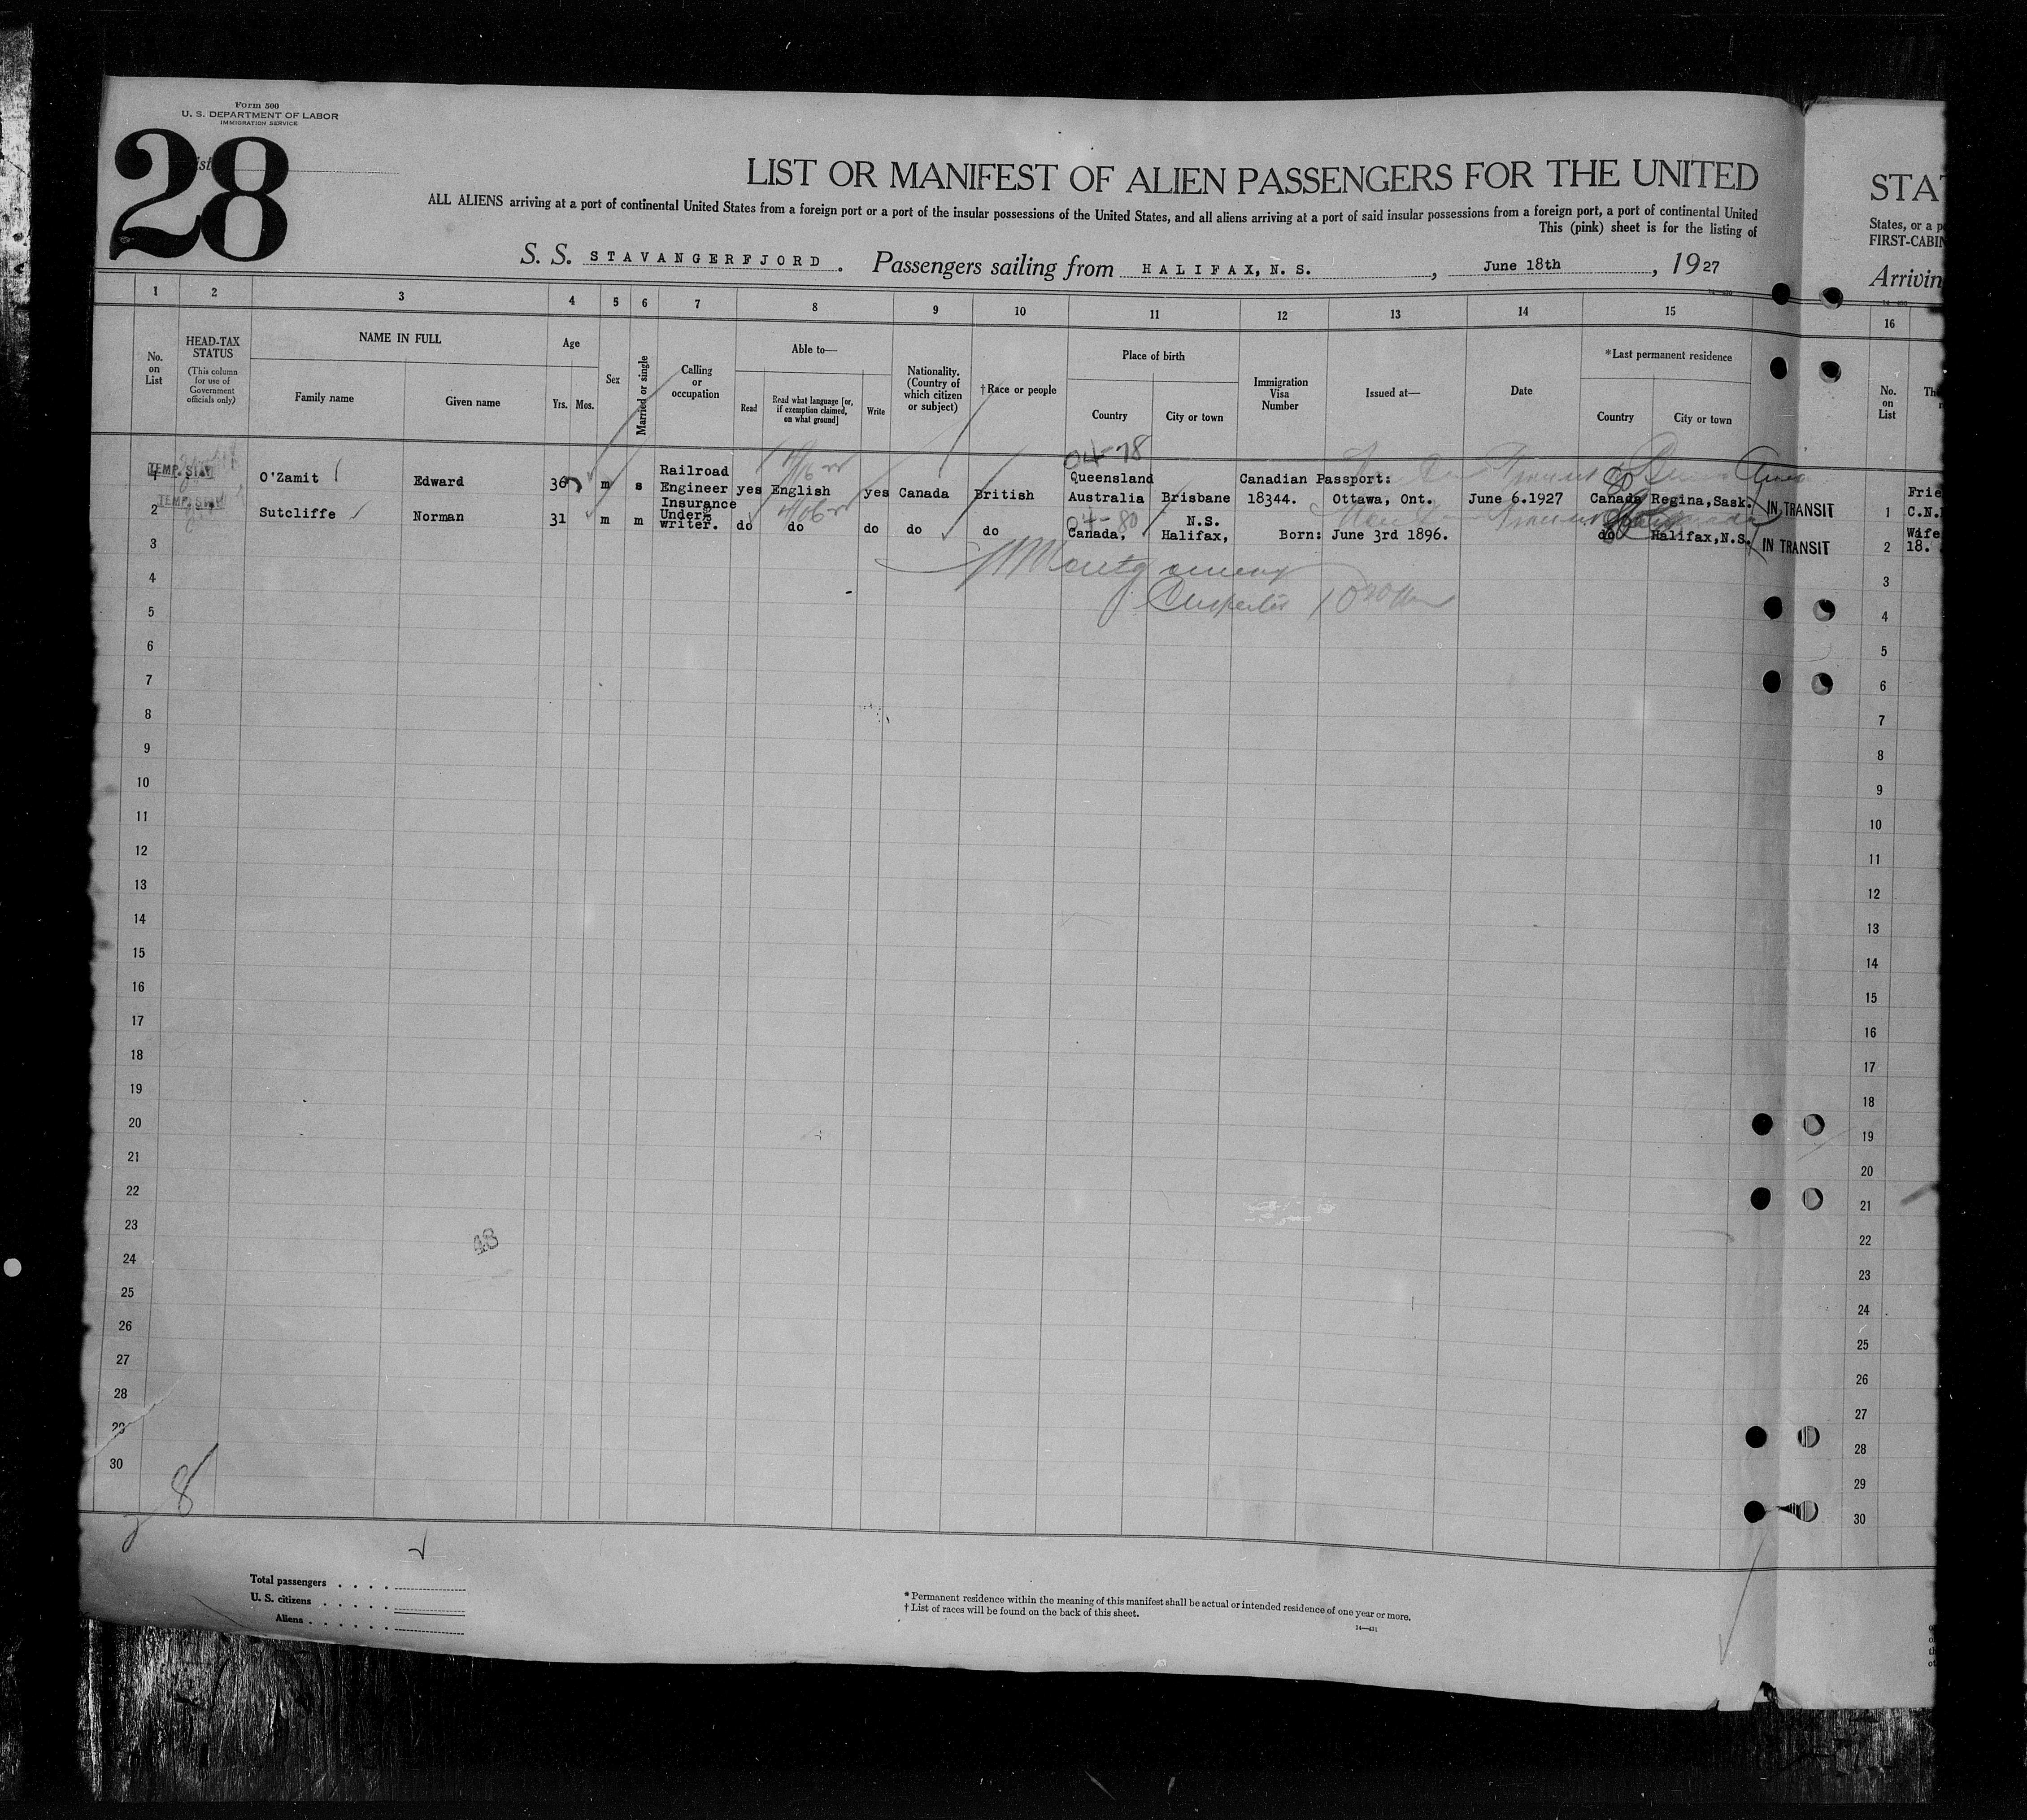 Form 500
U. S. DEPARTMENT OF LABOR
IMMIGRATION SERVICE
28
LIST OR MANIFEST OF ALIEN PASSENGERS FOR THE UNITED
STA
ALL ALIENS arriving at a port of continental United States from a foreign port or a port of the insular possessions of the United States, and all aliens arriving at a port of said insular possessions from a foreign port, a port of continental United
States, or a p
This (pink) sheet is for the listing of
FIRST-CABIN
S. S. STAVANGERFJORD. Passengers sailing from HALIFAX, N. S., June 18th, 1927
Arrivin
1 2 3 4 5 6 7 8 9 10 11 12 13 14 15 16
No. on List
HEAD-TAX STATUS
(This column for use of Government officials only)
NAME IN FULL
Family name
Given name
Age
Yrs. Mos.
Sex
Married or single
Calling or occupation
Able to—
Read
Read what language [or, if exemption claimed, on what ground]
Write
Nationality. (Country of which citizen or subject)
†Race or people
Place of birth
Country
City or town
Immigration Visa Number
Issued at—
Date
*Last permanent residence
Country
City or town
No. on List
04-78
TEMP. STAY
1 O'Zamit Edward 30 m s Railroad Engineer yes English yes Canada British Queensland Australia Brisbane Canadian Passport: 18344. Ottawa, Ont. June 6.1927 Canada Regina,Sask. IN TRANSIT 1 Frie C.N.
TEMP. STAY
04-80
2 Sutcliffe Norman 31 m m Insurance Under writer. do do do do do Canada, N.S. Halifax, Born: June 3rd 1896. do Halifax,N.S. IN TRANSIT 2 Wife 18.
3 3
Montgomery
4 4
Inspector
5 5
6 6
7 7
8 8
9 9
10 10
11 11
12 12
13 13
14 14
15 15
16 16
17 17
18 18
19 19
20 20
21 21
22 22
23 23
48
24 24
25 25
26 26
27 27
28 28
29 29
30 30
8
Total passengers
U. S. citizens
Aliens
* Permanent residence within the meaning of this manifest shall be actual or intended residence of one year or more.
† List of races will be found on the back of this sheet.
14—431